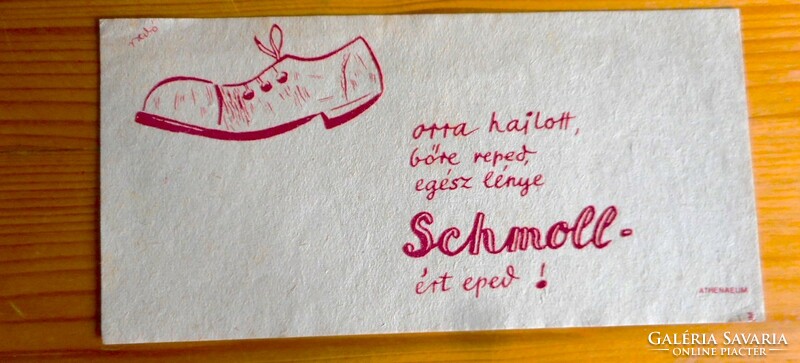 radó
orra hajlott,
bőre reped,
egész lénye
Schmoll-
ért eped!
ATHENAEUM
GALÉRIA SAVARIA
ONLINE PIACTÉR